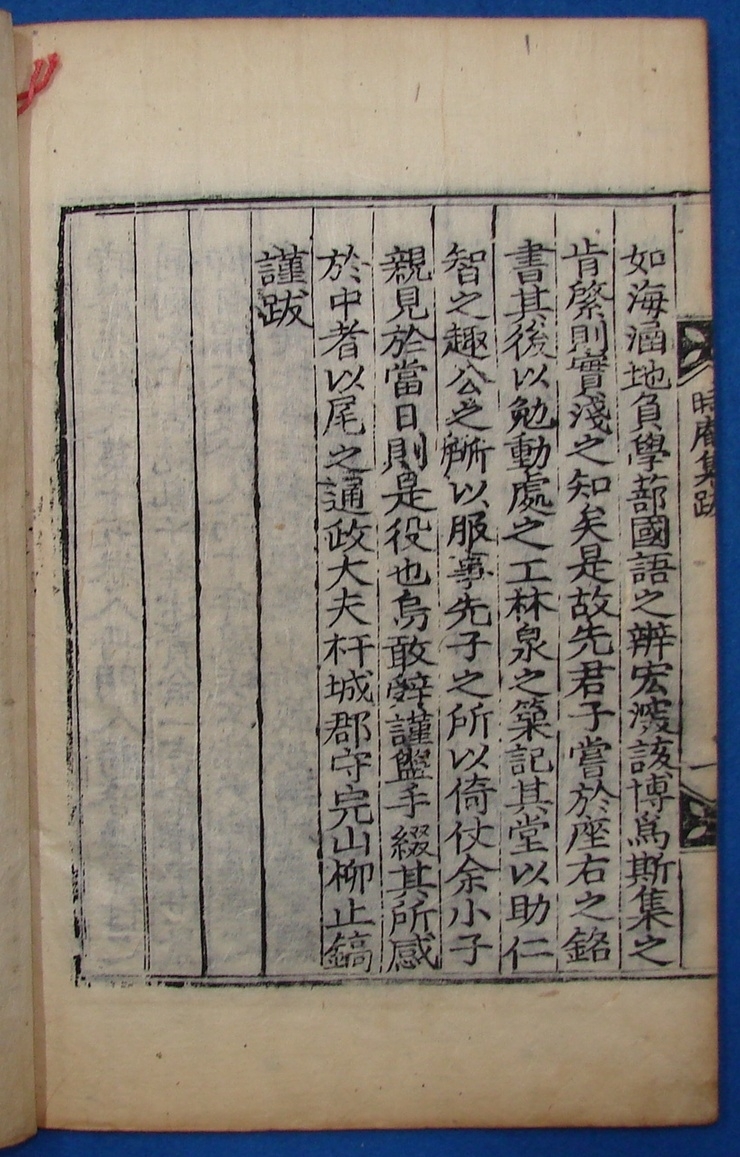 如海涵地負學蔀國語之辨宏深該博爲斯集之
肯綮則實淺之知矣是故先君子嘗於座右之銘
書其後以勉動處之工林泉之築記其堂以助仁
智之趣公之所以服事先子之所以倚仗余小子
親見於當日則是役也烏敢辭謹盥手綴其所感
於中者以尾之通政大夫杆城郡守完山柳止鎬
謹跋
時庵集跋
一